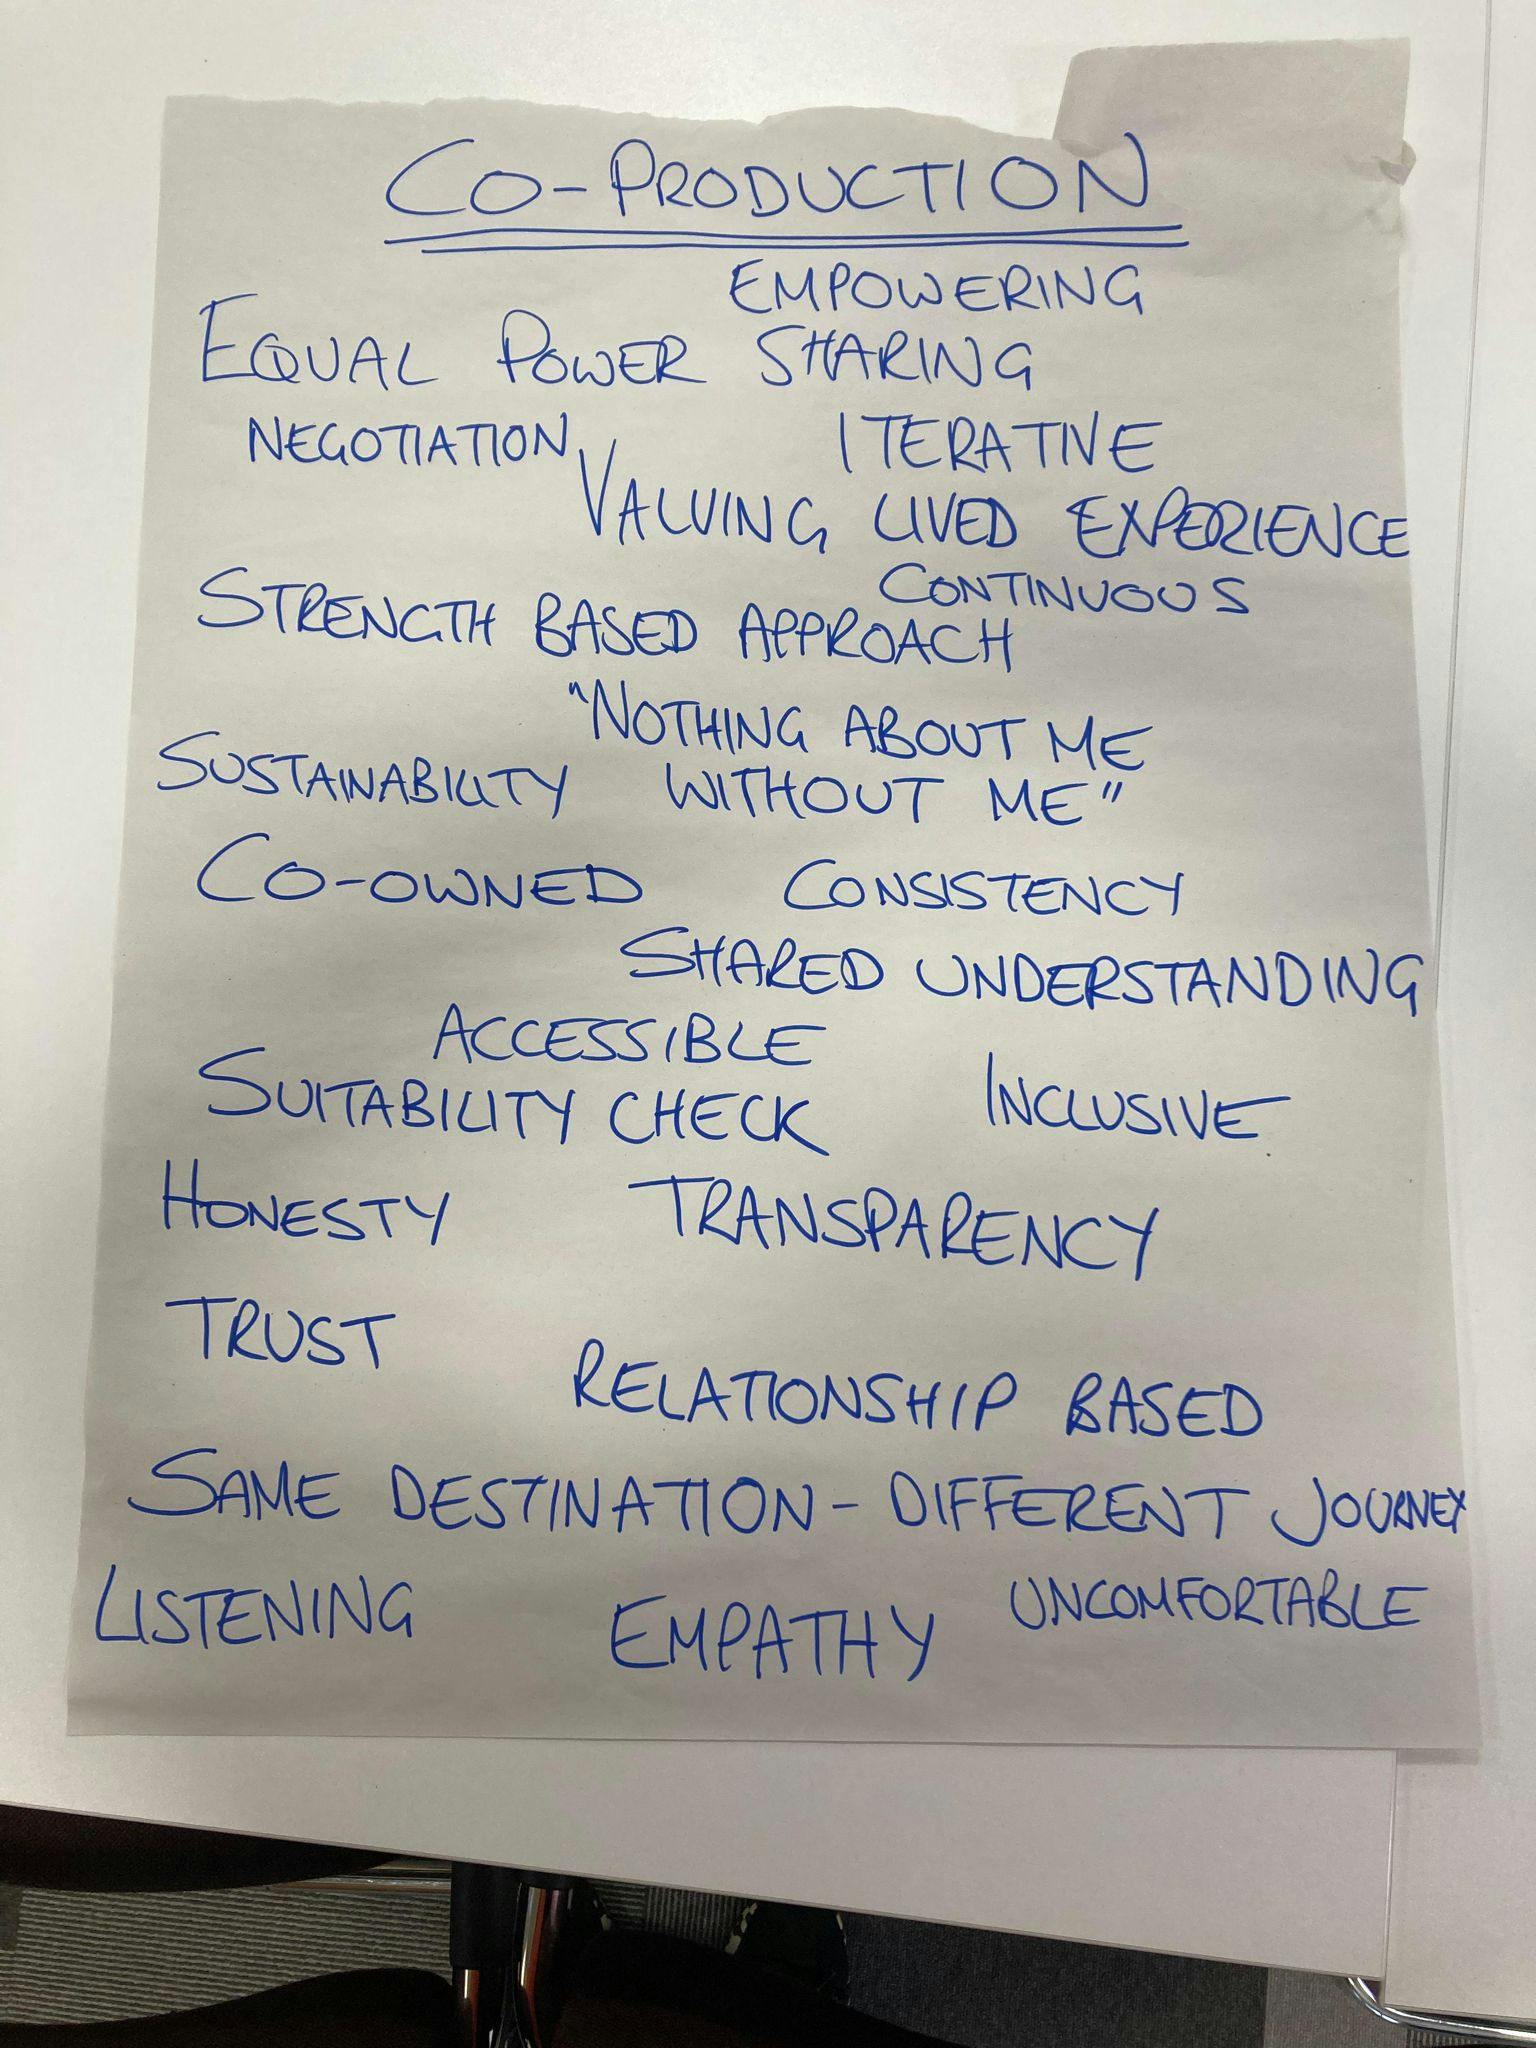 CO-PRODUCTION
EMPOWERING
EQUAL POWER SHARING
NEGOTIATION ITERATIVE
VALUING LIVED EXPERIENCE
CONTINUOUS
STRENGTH BASED APPROACH
"NOTHING ABOUT ME
SUSTAINABILITY WITHOUT ME"
CO-OWNED CONSISTENCY
SHARED UNDERSTANDING
ACCESSIBLE
SUITABILITY CHECK INCLUSIVE
HONESTY TRANSPARENCY
TRUST
RELATIONSHIP BASED
SAME DESTINATION - DIFFERENT JOURNEY
LISTENING EMPATHY UNCOMFORTABLE